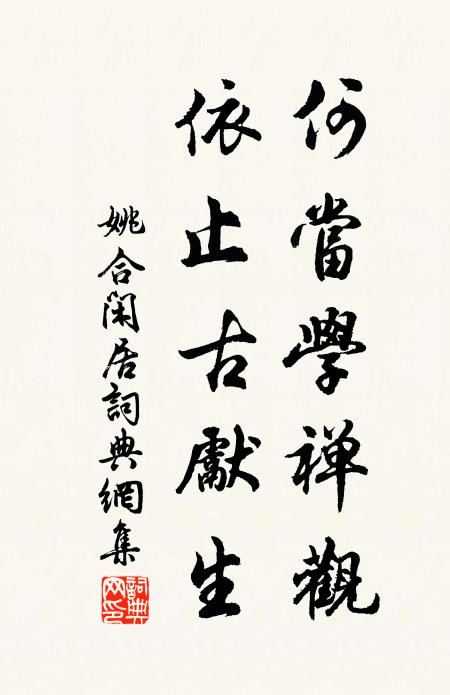 何當學禅觀
依止古獻生
姚合閑居詞典網集
詞典网印